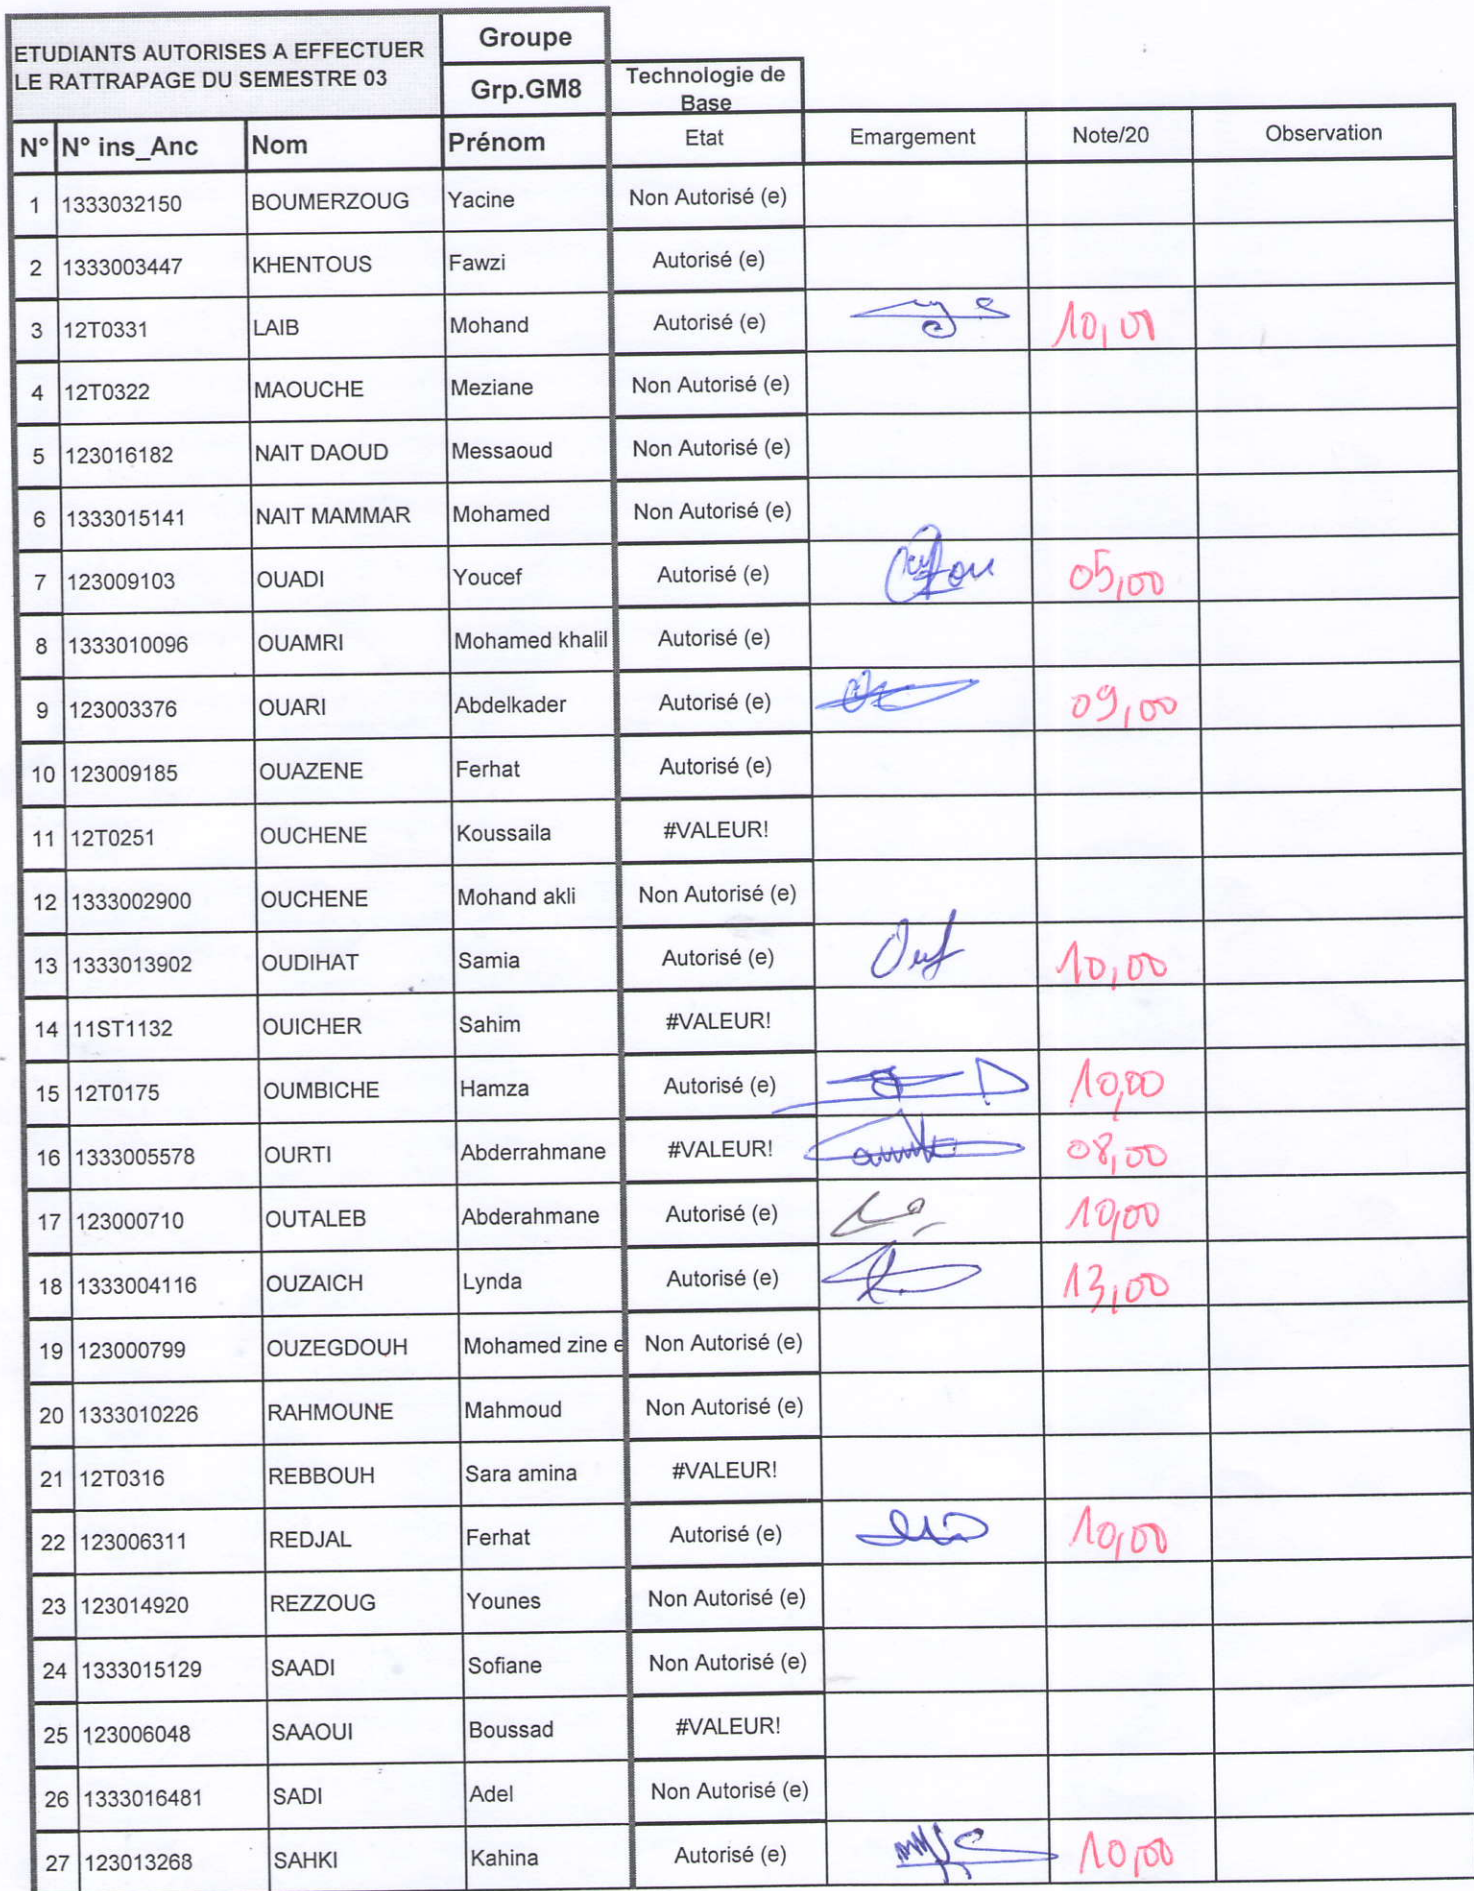 ETUDIANTS AUTORISES A EFFECTUER LE RATTRAPAGE DU SEMESTRE 03
Groupe
Grp.GM8
Technologie de Base
N° N° ins_Anc Nom Prénom Etat Emargement Note/20 Observation
1 1333032150 BOUMERZOUG Yacine Non Autorisé (e)
2 1333003447 KHENTOUS Fawzi Autorisé (e)
3 12T0331 LAIB Mohand Autorisé (e) 10,00
4 12T0322 MAOUCHE Meziane Non Autorisé (e)
5 123016182 NAIT DAOUD Messaoud Non Autorisé (e)
6 1333015141 NAIT MAMMAR Mohamed Non Autorisé (e)
7 123009103 OUADI Youcef Autorisé (e) 05,00
8 1333010096 OUAMRI Mohamed khalil Autorisé (e)
9 123003376 OUARI Abdelkader Autorisé (e) 09,00
10 123009185 OUAZENE Ferhat Autorisé (e)
11 12T0251 OUCHENE Koussaila #VALEUR!
12 1333002900 OUCHENE Mohand akli Non Autorisé (e)
13 1333013902 OUDIHAT Samia Autorisé (e) 10,00
14 11ST1132 OUICHER Sahim #VALEUR!
15 12T0175 OUMBICHE Hamza Autorisé (e) 10,00
16 1333005578 OURTI Abderrahmane #VALEUR! 08,00
17 123000710 OUTALEB Abderahmane Autorisé (e) 10,00
18 1333004116 OUZAICH Lynda Autorisé (e) 13,00
19 123000799 OUZEGDOUH Mohamed zine e Non Autorisé (e)
20 1333010226 RAHMOUNE Mahmoud Non Autorisé (e)
21 12T0316 REBBOUH Sara amina #VALEUR!
22 123006311 REDJAL Ferhat Autorisé (e) 10,00
23 123014920 REZZOUG Younes Non Autorisé (e)
24 1333015129 SAADI Sofiane Non Autorisé (e)
25 123006048 SAAOUI Boussad #VALEUR!
26 1333016481 SADI Adel Non Autorisé (e)
27 123013268 SAHKI Kahina Autorisé (e) 10,00